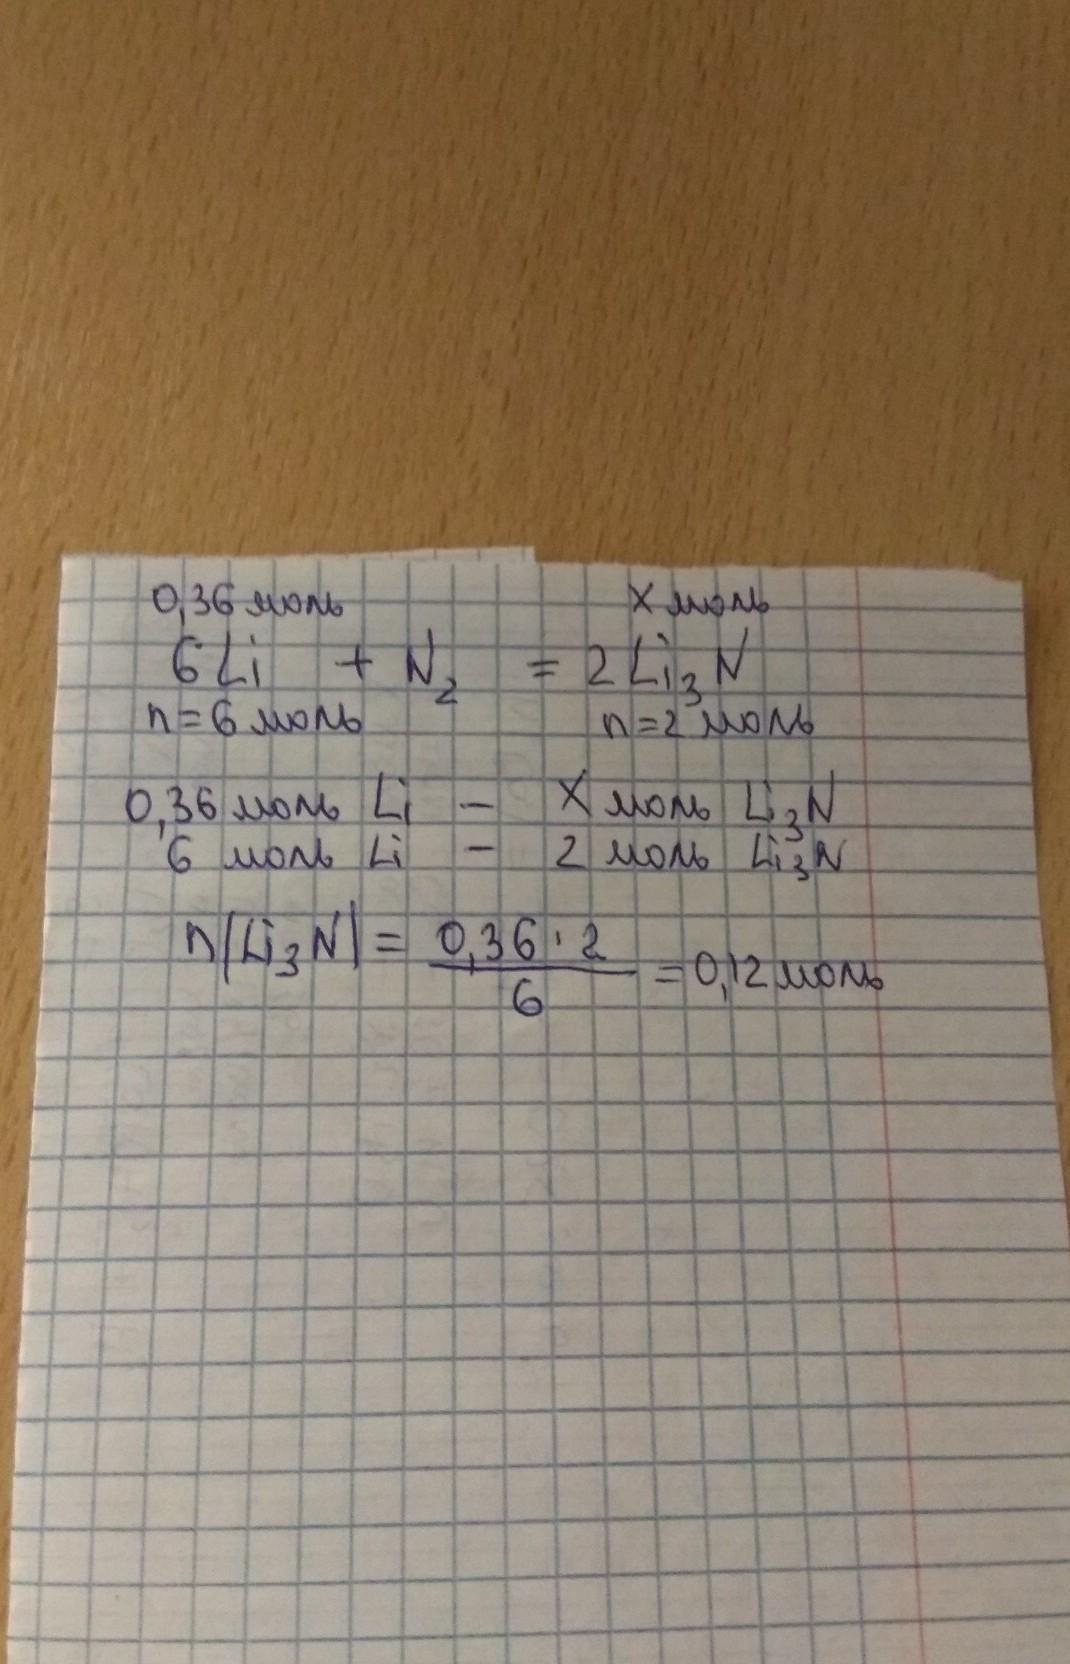 0,36 моль х моль
6Li + N₂ = 2Li₃N
n=6 моль n=2 моль
0,36 моль Li - х моль Li₃N
6 моль Li - 2 моль Li₃N
n(Li₃N) = 0,36·2 / 6 = 0,12 моль